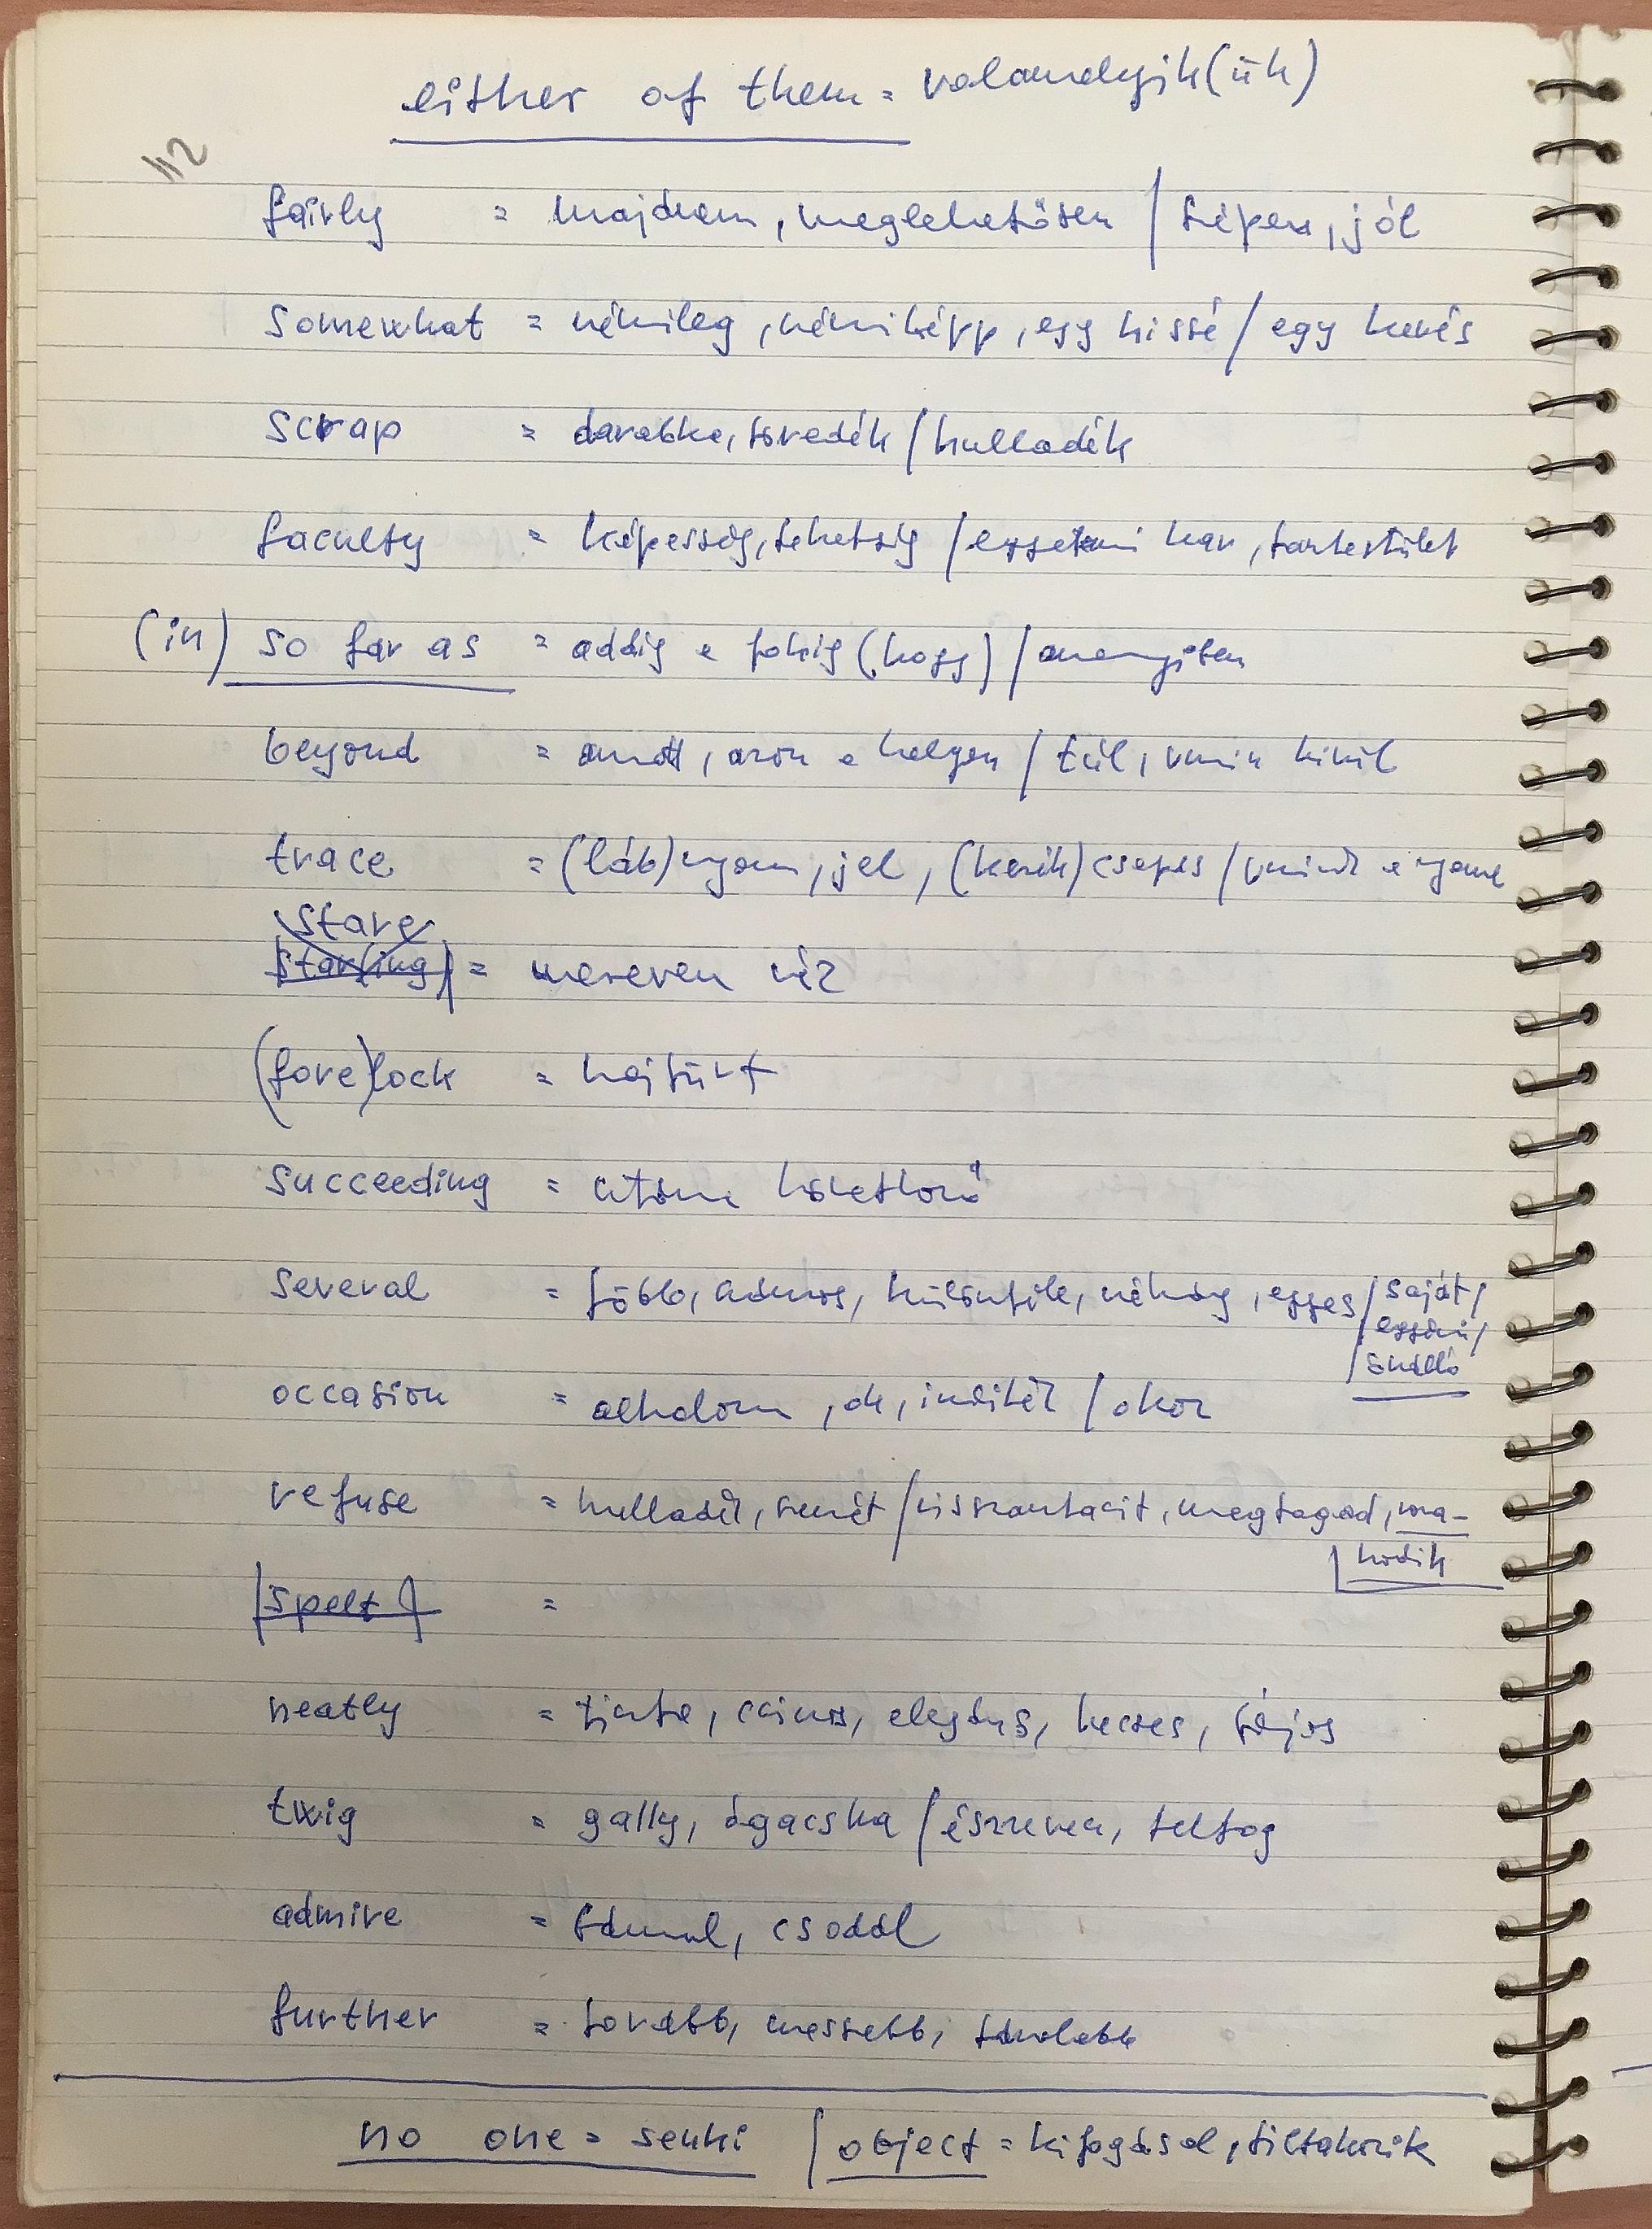 either of them = valamelyik(ük)
112
fairly = majdnem, meglehetősen / szépen, jól
somewhat = némileg, némiképp, egy kissé / egy kevés
scrap = darabka, töredék / hulladék
faculty = képesség, tehetség / egyetemi kar, tantestület
(in) so far as = addig a fokig (hogy) / amennyiben
beyond = amott, azon a helyen / túl, vmin kívül
trace = (láb)nyom, jel, (kerék)csapás / vminek a nyoma
stare
star(ing) = mereven néz
(fore)lock = hajfürt
succeeding = utána következő
several = több, számos, különféle, néhány, egyes / saját /
egyéni /
/ önálló
occasion = alkalom, ok, indíték / okoz
refuse = hulladék, szemét / visszautasít, megtagad, vona-
kodik
spelt =
neatly = tiszta, csinos, elegáns, kecses, bájos
twig = gally, ágacska / észrevesz, felfog
admire = bámul, csodál
further = tovább, messzebb, távolabb
no one = senki / object = kifogásol, tiltakozik